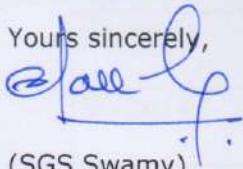 Yours sincerely,
(SGS Swamy)